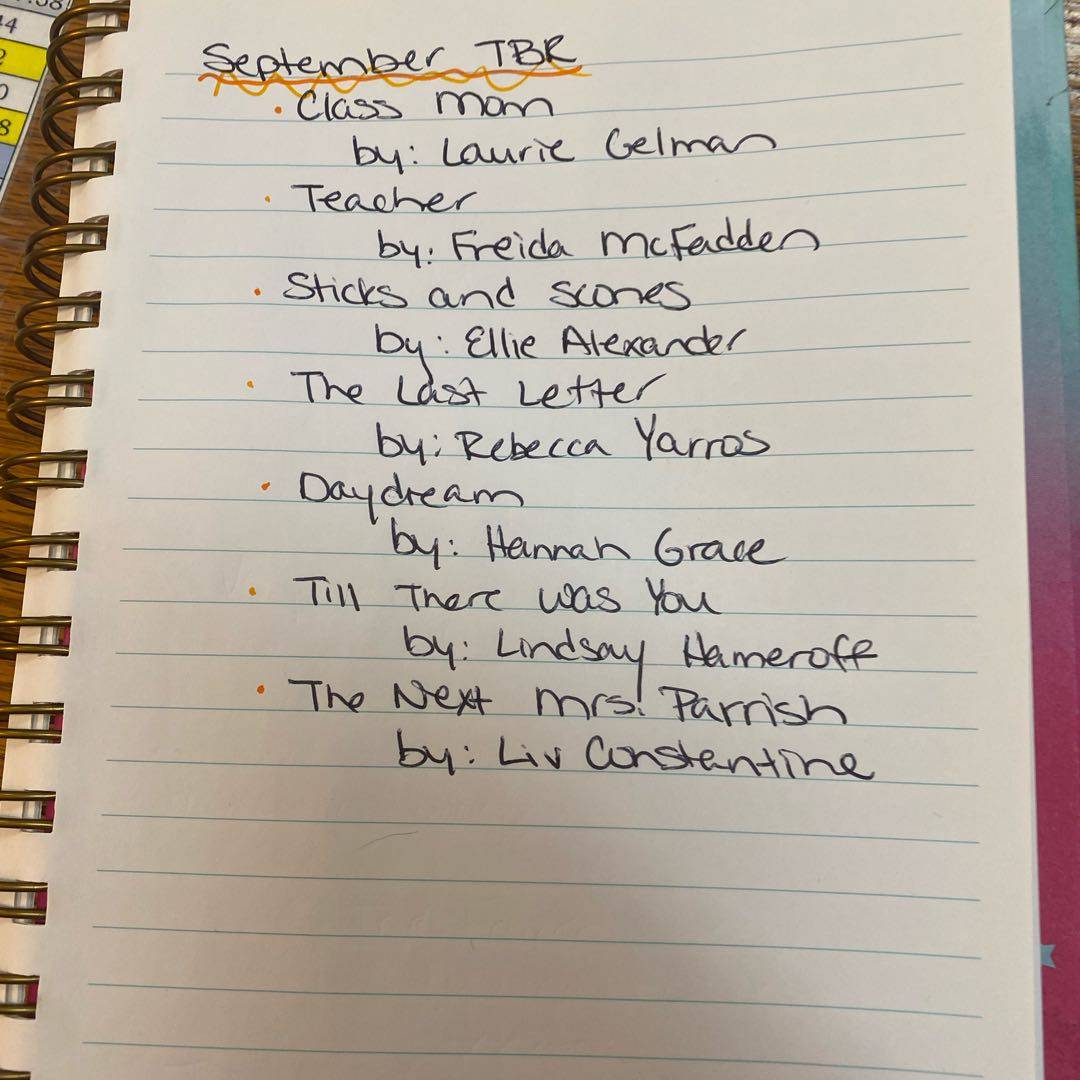 September TBR
• Class mom
by: Laurie Gelman
• Teacher
by: Freida McFadden
• Sticks and scones
by: Ellie Alexander
• The Last Letter
by: Rebecca Yarros
• Daydream
by: Hannah Grace
• Till There was You
by: Lindsay Hameroff
• The Next Mrs. Parrish
by: Liv Constantine